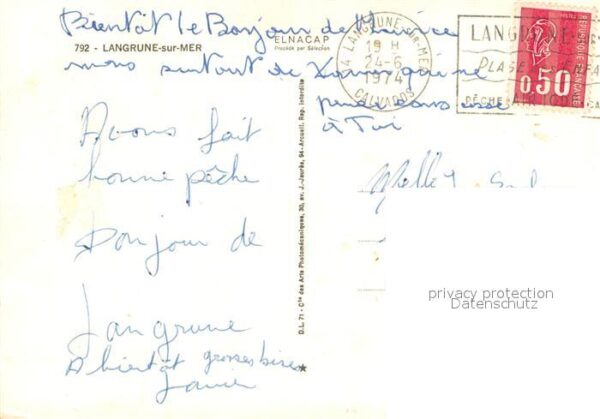 Bientôt le Bonjour de Maurice
ELNACAP
Procédé par Sélection
792 - LANGRUNE-sur-MER
mais surtout de Xavier qui ne
pense sans cesse
à Toi
14 LANGRUNE-sur-MER
19 H
24-6
1974
CALVADOS
PLAGE
PÊCHE
RÉPUBLIQUE FRANÇAISE
0,50
Avons fait
bonne pêche
Bonjour de
Langrune
A bientôt grosses bises
Xavier
D.L. 71 - Cie des Arts Photomécaniques, 30, av. J.-Jaurès, 94-Arcueil. Rep. interdite
privacy protection
Datenschutz